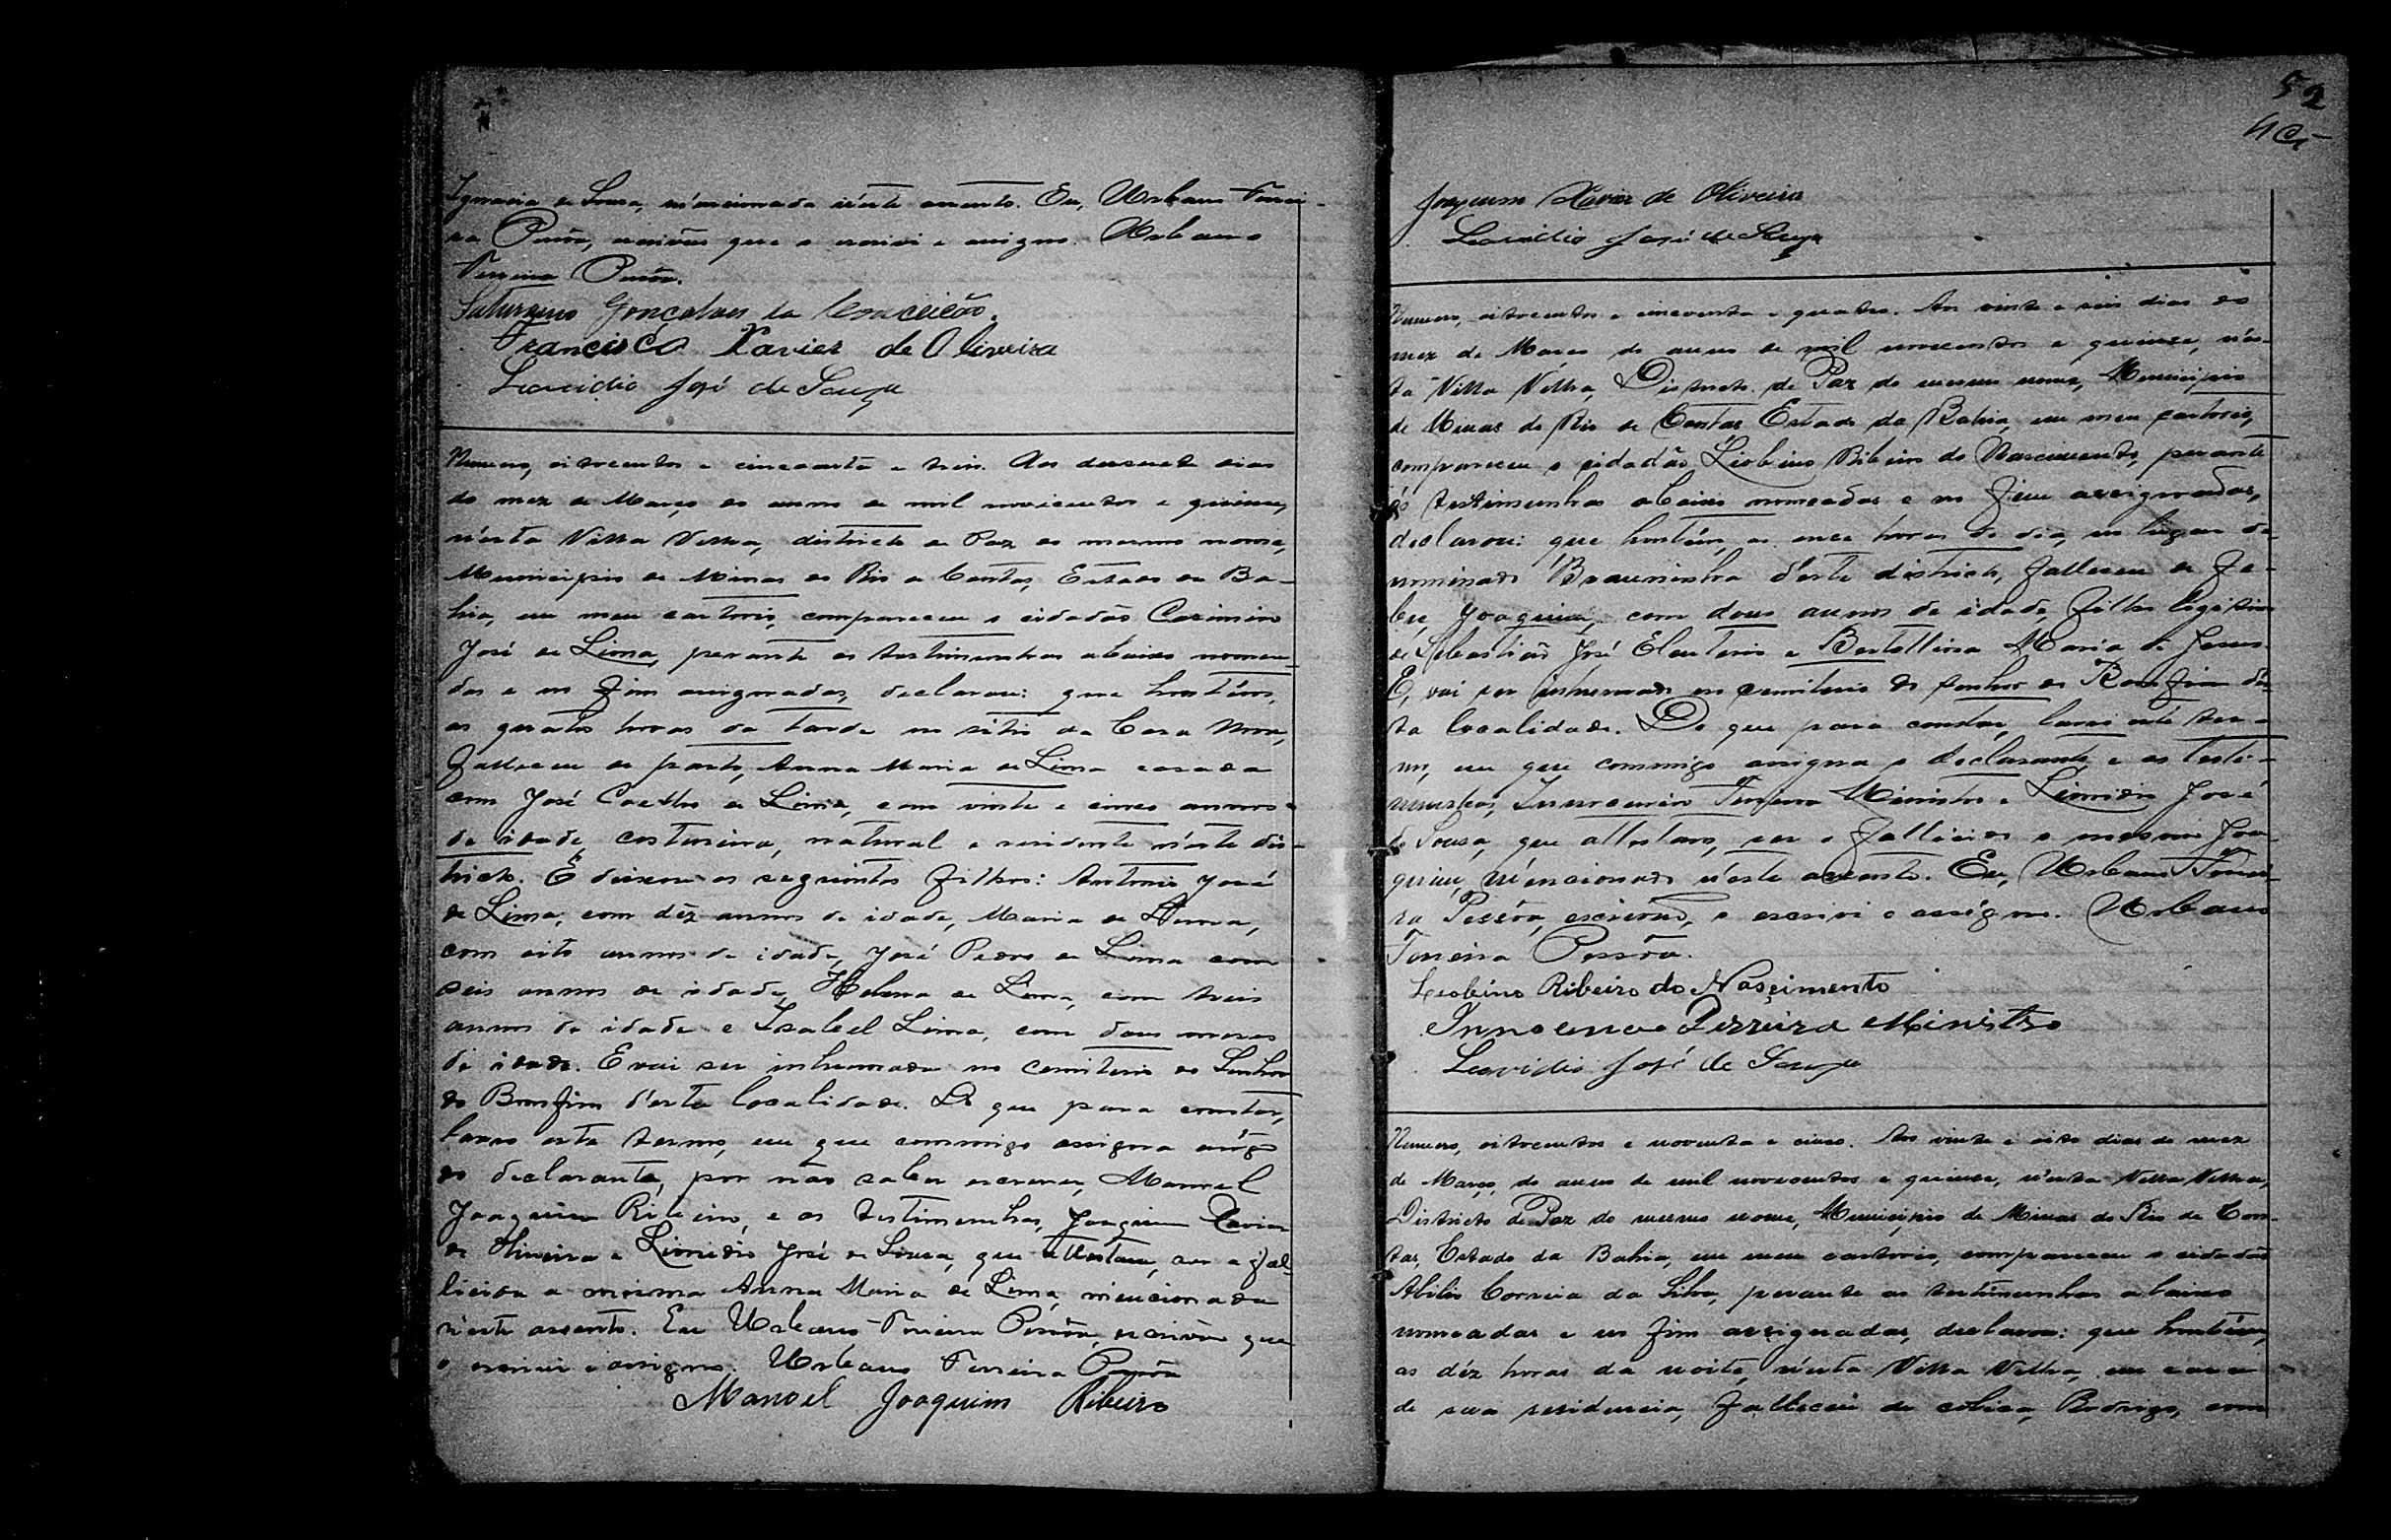 Ignacia de Sousa, mencionada n'este assento. Eu, Urbano Ferrei-
ra Pessôa, escrivão que o escrevi e assigno. Urbano
Ferreira Pessôa.
Saturnino Gonçalves da Conceicão.
Francisco Xavier de Oliveira
Leovidio José de Souza
Numero, oitocentos e cincoenta e treis. Aos desenete dias
do mez de Março do anno de mil novicentos e quinze,
n'esta Villa Velha, districto de Paz do mesmo nome,
Municipio de Minas do Rio de Contas, Estado da Ba-
hia, em meu cartorio, compareceu o cidadão Casimiro
José de Lima, perante as testimunhas abaixo nomea-
das e no fim assignadas, declarou: que hontém,
as quatro horas da tarde no sitio da Casa Nova,
falleceu de parto, Anna Maria de Lima casada
com José Coelho de Lima, com vinte e cinco annos
de idade, costureira, natural e residente n'este dis-
tricto. E deixou os seguintes filhos: Antonio José
de Lima, com déz annos de idade, Maria de Lima,
com oito annos de idade, José Pedro de Lima com
seis annos de idade, Helena de Lima, com treis
annos de idade e Isabel Lima, com dous mezes
de idade. E vai ser inhumada no cemiterio do Senhor
do Bomfim d'esta localidade. Do que para constar,
lavro este termo, em que commigo assigna a rôgo
do declarante, por não saber escrever, Manoel
Joaquim Ribeiro, e as testimunhas, Joaquim Xavier
de Oliveira e Lionidio José de Sousa, que attestam, ser a fal-
licida a mesma Anna Maria de Lima, mencionada
n'este assento. Eu Urbano Ferreira Pessôa, escrivão que
o escrevi e assigno. Urbano Ferreira Pessôa
Manoel Joaquim Ribeiro
52
Joaquim Xavier de Oliveira
Leovidio José de Souza
Numero, oitocentos e cincoenta e quatro. Aos vinte e seis dias do
mez de Março do anno de mil novecentos e quinze, n'es-
ta Villa Velha, Districto de Paz do mesmo nome, Municipio
de Minas do Rio de Contas Estado da Bahia, em meu cartorio,
compareceu o cidadão Liobino Ribeiro do Nascimento, perante
as testimunhas abaixo nomeadas e no fim assignadas,
declarou: que hontém, as onze horas do dia, no lugar de-
nominado Brauninha d'este districto, falleceu de fe-
bre, Joaquim, com dous annos de idade, filho legitimo
de Sebastião José Eleuterio e Bertollina Maria de Jesus.
E, vai ser inhumado no cemiterio do Senhor do Bomfim d'es-
ta localidade. Do que para constar, lavrei este ter-
mo, em que commigo assigna o declarante e as testi-
munhas, Innocencio Ferreira Ministro e Lionidio José
de Sousa, que attestam, ser o fallicido o mesmo Joa-
quim, mencionado n'este assento. Eu, Urbano Ferrei-
ra Pessôa, escrivão, o escrevi e assigno. Urbano
Ferreira Pessôa.
Leobino Ribeiro do Nascimento
Innocencio Ferreira Ministro
Leovidio José de Souza
Numero, oitocentos e noventa e cinco. Aos vinte e oito dias do mez
de Março, do anno de mil novecentos e quinze, n'esta Villa Velha,
Districto de Paz do mesmo nome, Municipio de Minas do Rio de Con-
tas, Estado da Bahia, em meu cartorio, compareceu o cidadão
Abilio Correia da Silva, perante as testimunhas abaixo
nomeadas e no fim assignadas, declarou: que hontém,
as déz horas da noite, n'esta Villa Velha, em casa
de sua residencia, falleceu de colica, Rodrigo, com